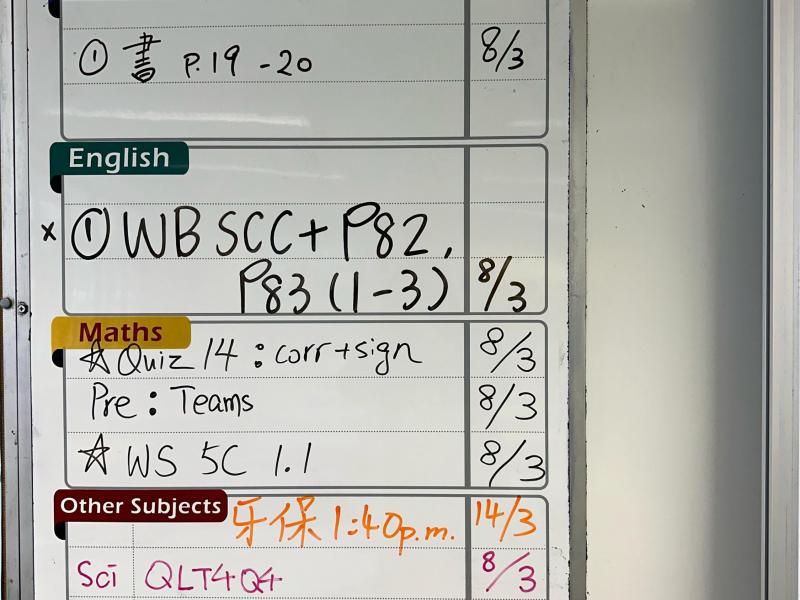 ① 書 P.19 - 20 8/3
English
x ① WB SCC + P82,
P83 (1-3) 8/3
Maths
☆ Quiz 14 : corr+sign 8/3
Pre : Teams 8/3
☆ WS 5C 1.1 8/3
Other Subjects 牙保 1:40p.m. 14/3
Sci QLT4Q4 8/3